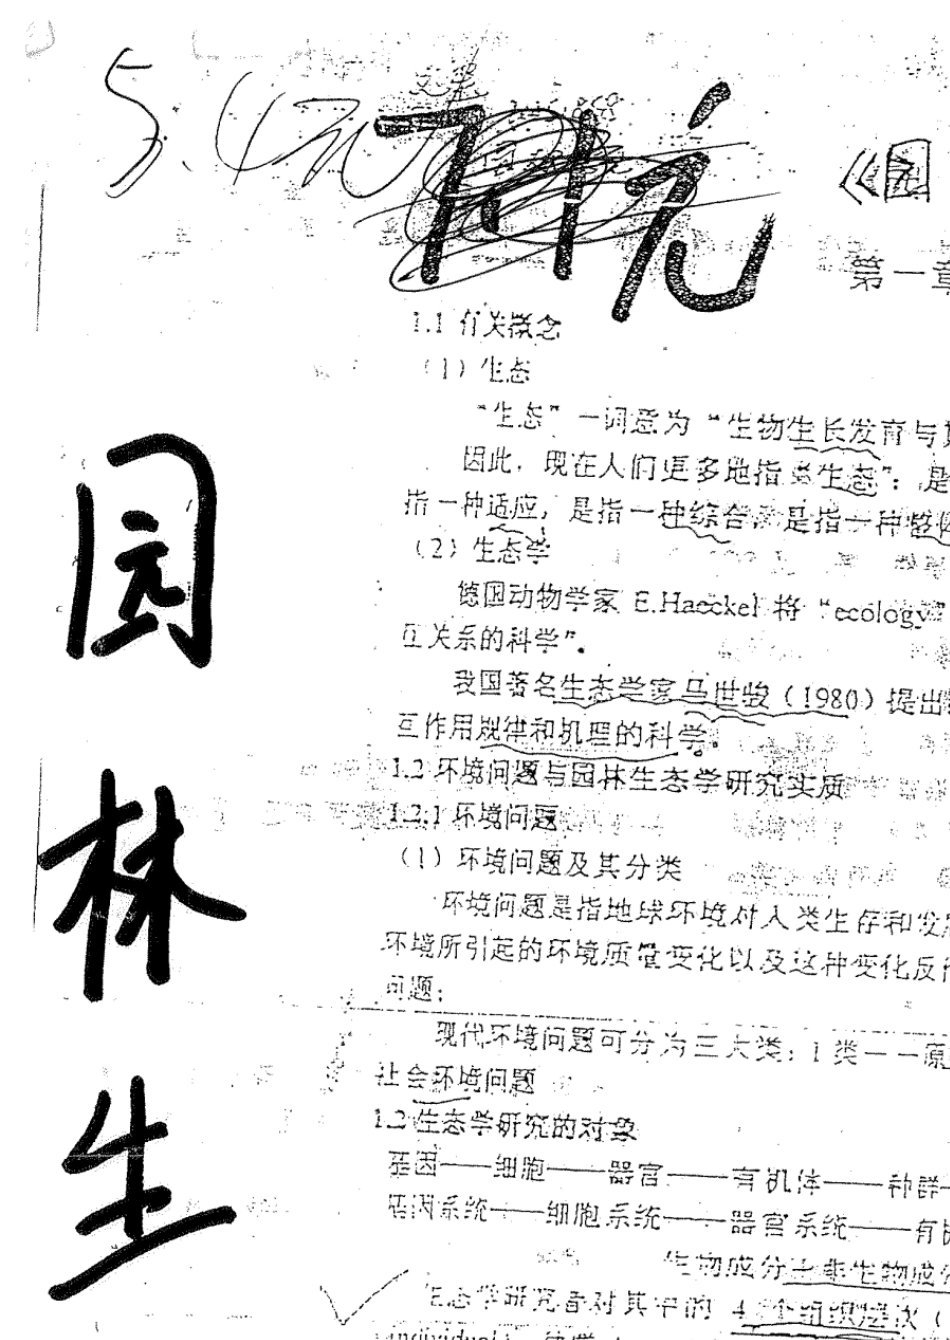 5.4元
《园
第一章
1.1 有关概念
（1）生态
“生态”一词意为“生物生长发育与
因此，现在人们更多地指 生态”：是
指一种适应，是指一种综合， 是指一种整体
（2）生态学
德国动物学家 E.Haeckel 将 “ecology”
互关系的科学”.
我国著名生态学家马世骏（1980）提出
互作用规律和机理的科学。
1.2 环境问题与园林生态学研究实质
1.2.1 环境问题
（1）环境问题及其分类
环境问题是指地球环境对人类生存和发
环境所引起的环境质量变化以及这种变化反作
问题；
现代环境问题可分为三大类：1 类——原
社会环境问题
1.2 生态学研究的对象
基因——细胞——器官——有机体——种群
基因系统——细胞系统——器官系统——有机
生物成分＋非生物成分
生态学研究者对其中的 4 个组织层次（
individual）
园
林
生